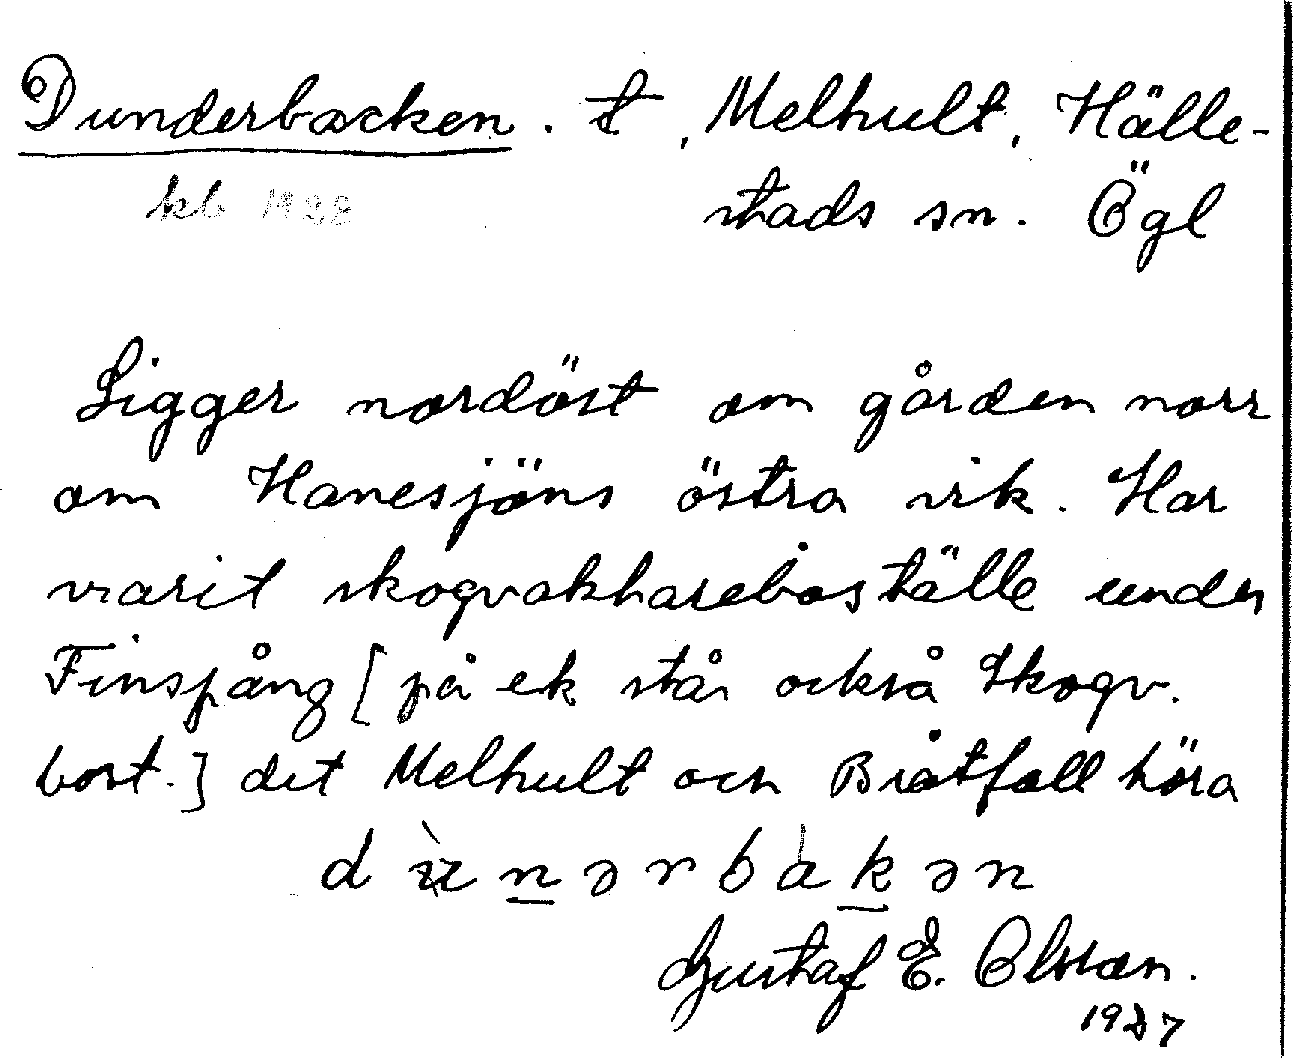 Dunderbacken. t, Melhult, Hälle-
kb 1922 stads sn. Ögl
Ligger nordöst om gården norr
om Hanesjöns östra vik. Har
varit skogvaktareboställe under
Finspång [på ek står också Skogv.
bost.] dit Melhult och Bråtfall höra
dùnərbakən
Gustaf E. Olsson.
1927